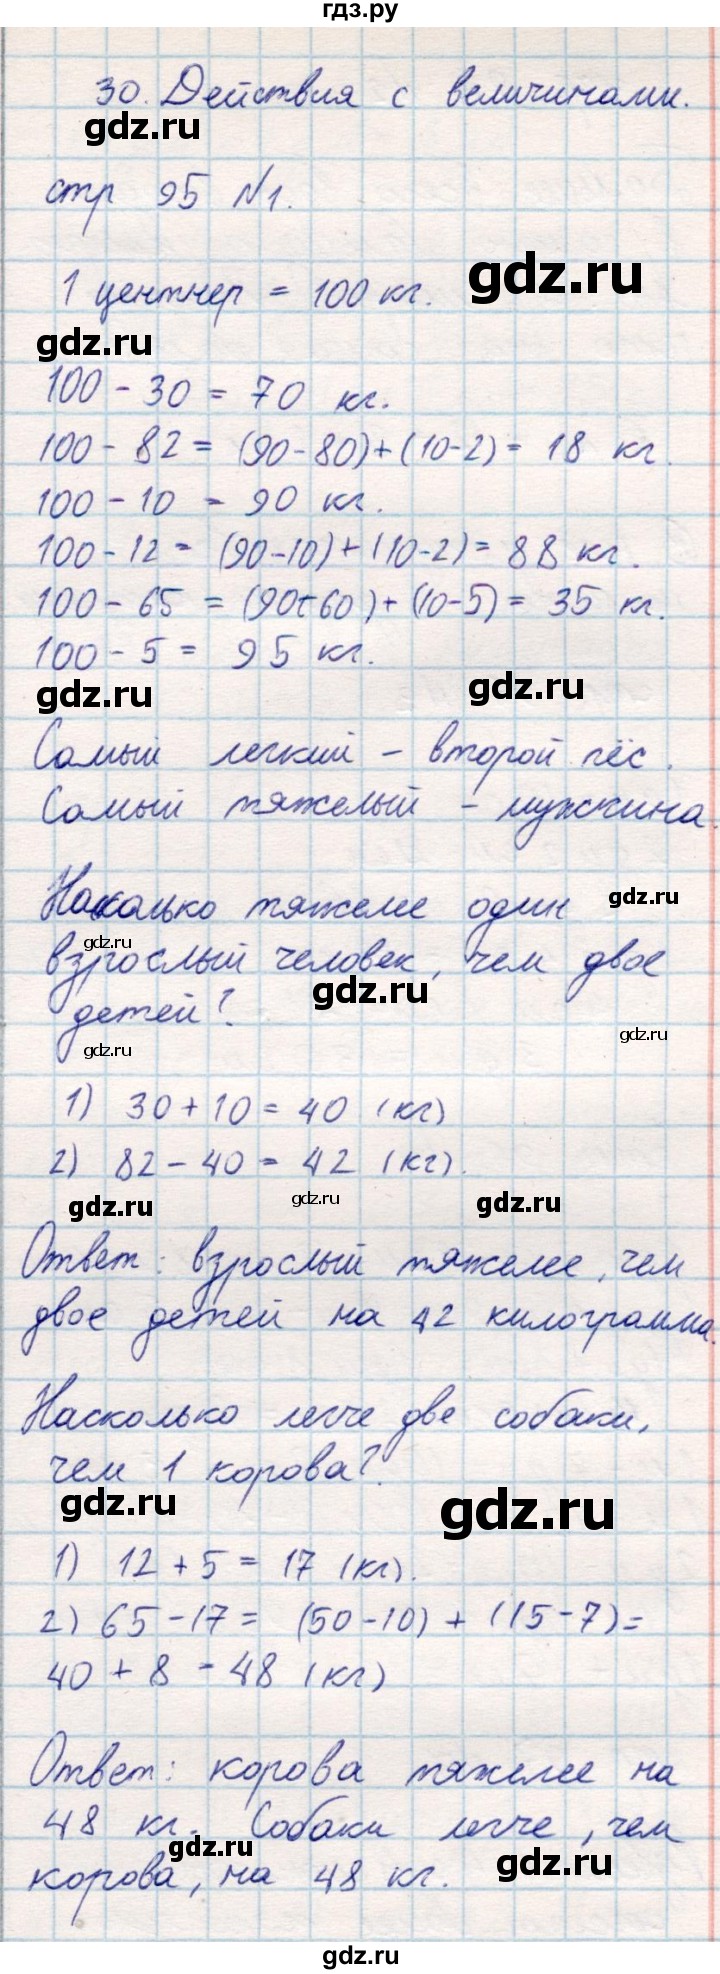 гдз.ру
30. Действия с величинами.
gdz.ru
стр 95 №1.
gdz.ru
1 центнер = 100 кг.
gdz.ru
100 - 30 = 70 кг.
100 - 82 = (90-80)+(10-2)= 18 кг.
100 - 10 = 90 кг.
100-12 = (90-10)+(10-2)= 88 кг.
100 - 65 = (90-60)+(10-5)= 35 кг.
100 - 5 = 95 кг.
gdz.ru
gdz.ru
Самый легкий - второй пёс.
Самый тяжелый - мужчина.
gdz.ru
Насколько тяжелее один
gdz.ru
взрослый человек, чем двое
gdz.ru
детей?
gdz.ru
gdz.ru
1) 30+10=40 (кг)
2) 82-40=42 (кг).
gdz.ru
gdz.ru
gdz.ru
Ответ: взрослый тяжелее, чем
двое детей на 42 килограмма.
Насколько легче две собаки,
чем 1 корова?
gdz.ru
gdz.ru
1) 12+5=17 (кг).
2) 65-17= (50-10) + (15-7)=
40 + 8 = 48 (кг)
Ответ: корова тяжелее на
48 кг. Собаки легче, чем
gdz.ru
gdz.ru
корова, на 48 кг.
gdz.ru